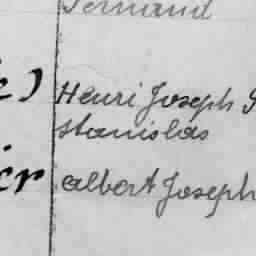 Fernand
Henri Joseph
Stanislas
Albert Joseph